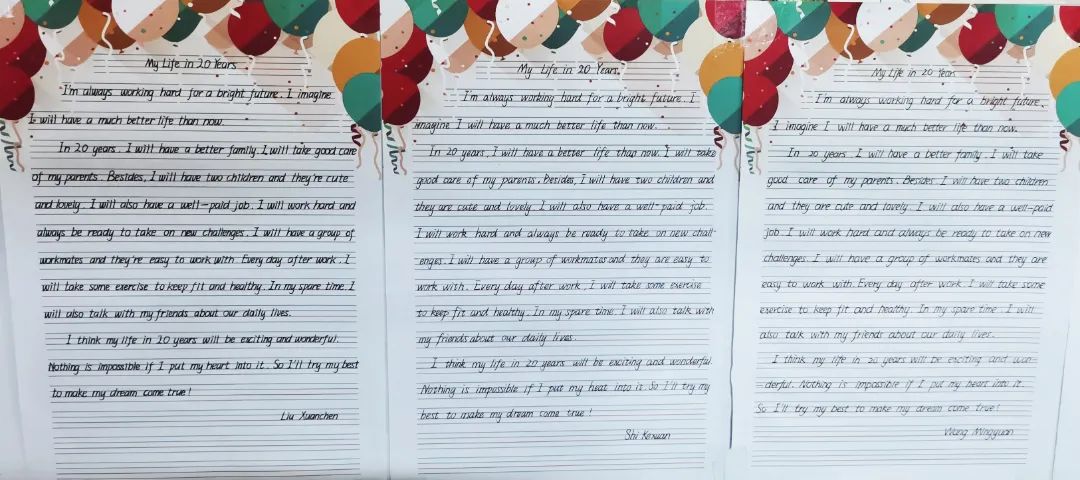 My Life in 20 Years
I'm always working hard for a bright future. I imagine
I will have a much better life than now.
In 20 years, I will have a better family. I will take good care
of my parents. Besides, I will have two children and they're cute
and lovely. I will also have a well-paid job. I will work hard and
always be ready to take on new challenges. I will have a group of
workmates and they're easy to work with. Every day after work, I
will take some exercise to keep fit and healthy. In my spare time, I
will also talk with my friends about our daily lives.
I think my life in 20 years will be exciting and wonderful.
Nothing is impossible if I put my heart into it. So I'll try my best
to make my dream come true!
Liu Xuanchen
My Life in 20 Years
I'm always working hard for a bright future. I
imagine I will have a much better life than now.
In 20 years, I will have a better life than now. I will take
good care of my parents. Besides, I will have two children and
they are cute and lovely. I will also have a well-paid job.
I will work hard and always be ready to take on new chall-
enges. I will have a group of workmates and they are easy to
work with. Every day after work, I will take some exercise
to keep fit and healthy. In my spare time, I will also talk with
my friends about our daily lives.
I think my life in 20 years will be exciting and wonderful.
Nothing is impossible if I put my heat into it. So I'll try my
best to make my dream come true!
Shi Kexuan
My Life in 20 Years
I'm always working hard for a bright future.
I imagine I will have a much better life than now.
In 20 years, I will have a better family. I will take
good care of my parents. Besides, I will have two children
and they are cute and lovely. I will also have a well-paid
job. I will work hard and always be ready to take on new
challenges. I will have a group of workmates and they are
easy to work with. Every day after work, I will take some
exercise to keep fit and healthy. In my spare time, I will
also talk with my friends about our daily lives.
I think my life in 20 years will be exciting and won-
derful. Nothing is impossible if I put my heart into it.
So I'll try my best to make my dream come true!
Wang Mingyuan